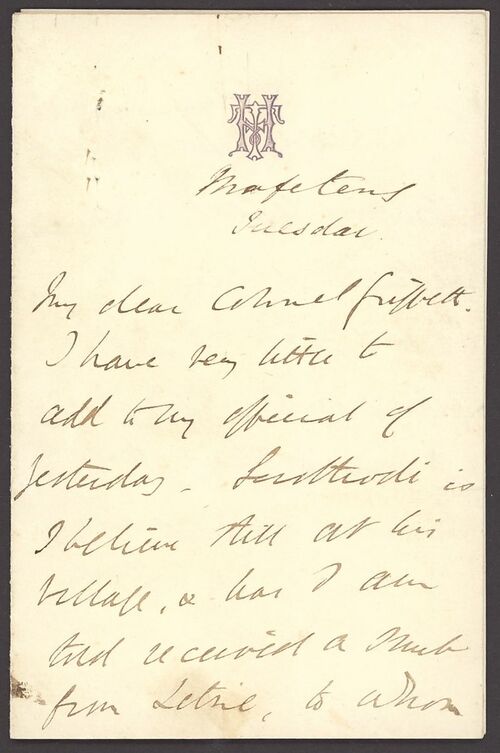 Mafeteng
Tuesday.
My dear Colonel Griffith.
I have very little to
add to my official of
yesterday. Lerothodi is
I believe still at his
village, & has I am
told received a snub
from Letsie, to whom